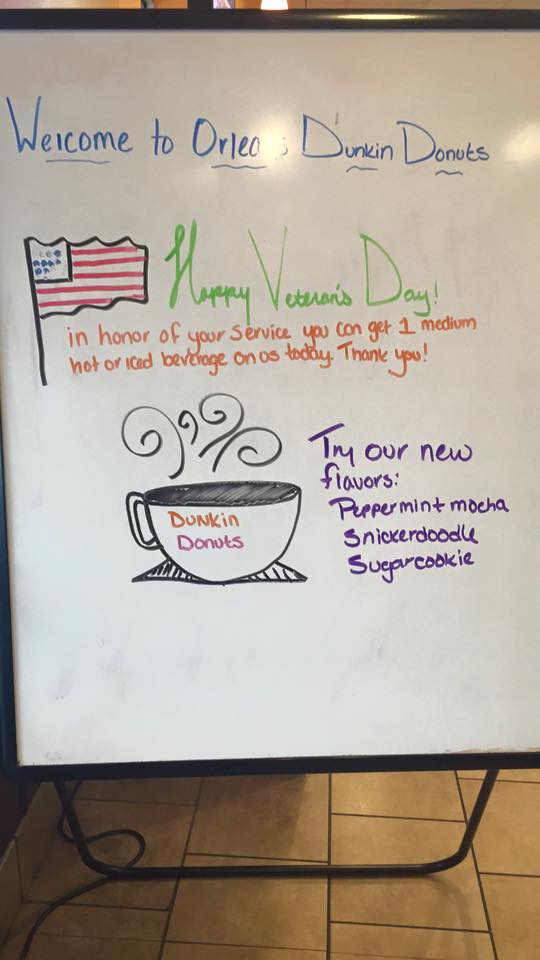 Welcome to Orlea s Dunkin Donuts
Happy Veteran's Day!
in honor of your service you can get 1 medium
hot or iced beverage on us today. Thank you!
Try our new
flavors:
Peppermint mocha
Snickerdoodle
Sugarcookie
DUNKIN
DONUTS